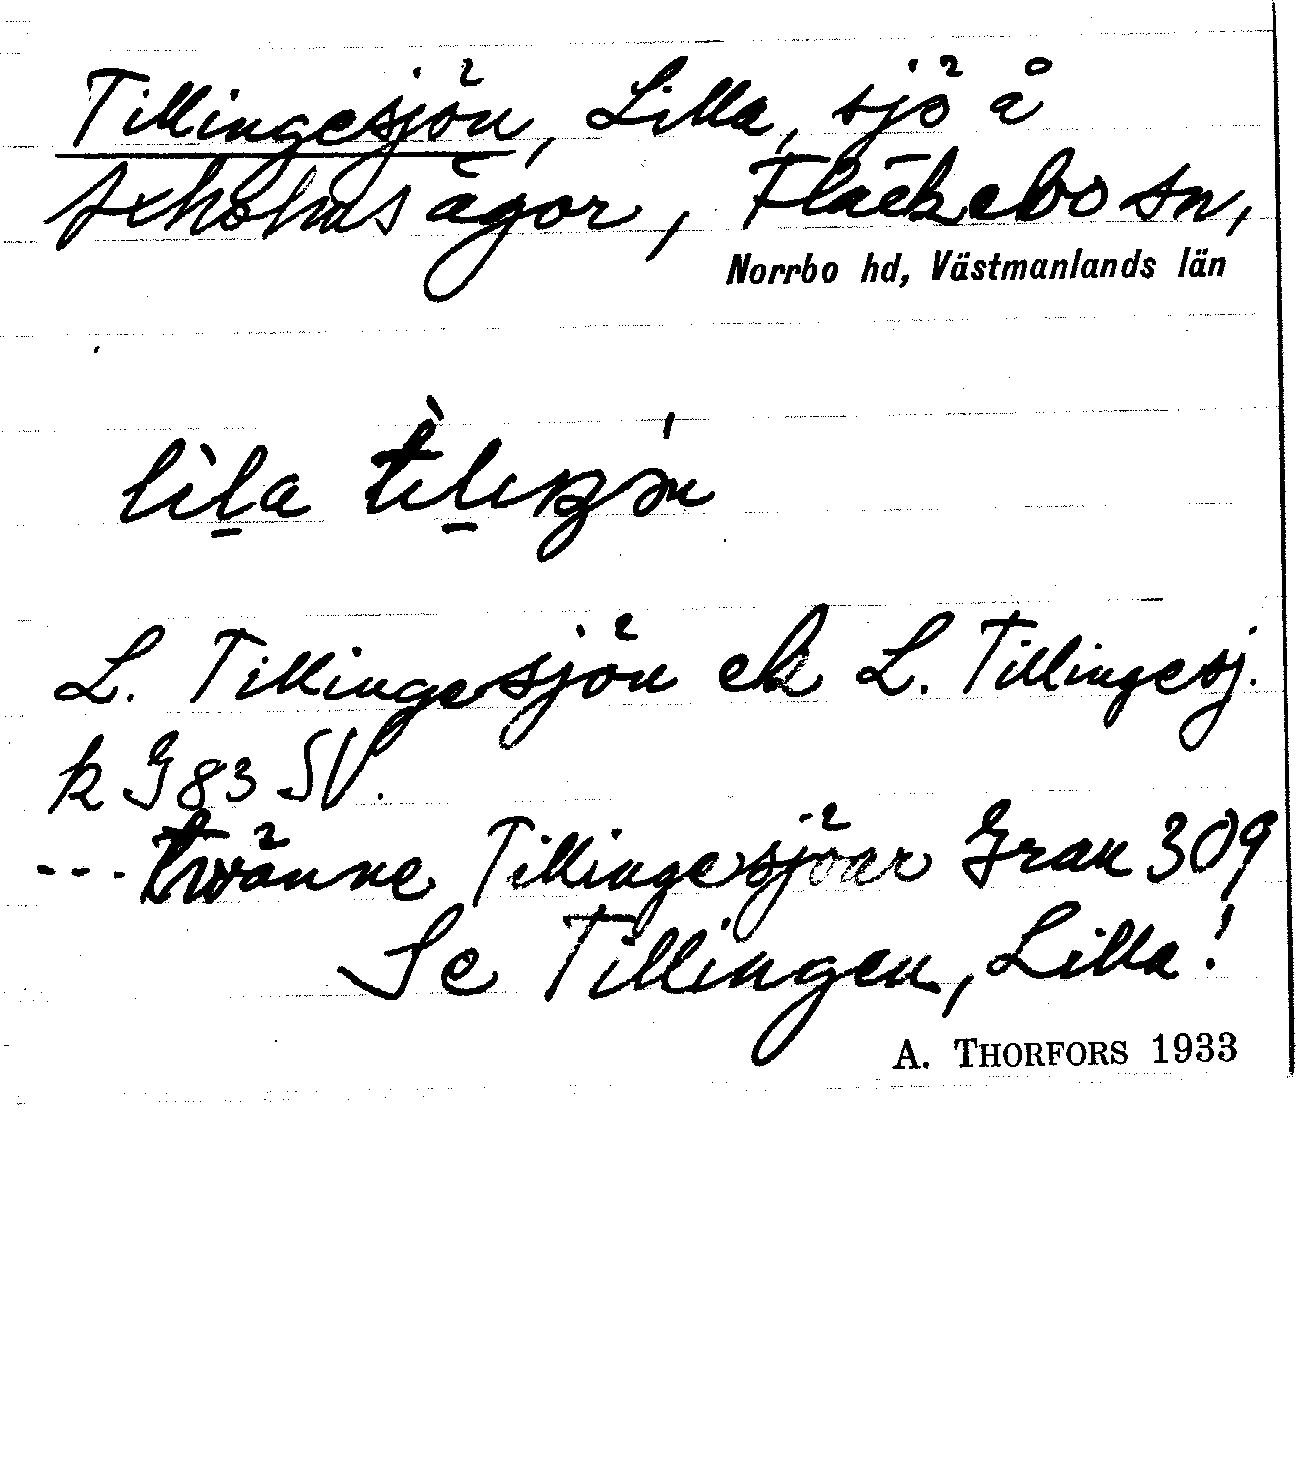 Tillingesjön, Lilla, sjö å
ägor, Fläckebo sn,
Norrbo hd, Västmanlands län
L. Tillingesjön ek L. Tillingesj.
k G 83 SV.
--- twänne Tillingesjöar Grau 309
Se Tillingen, Lilla!
A. THORFORS 1933